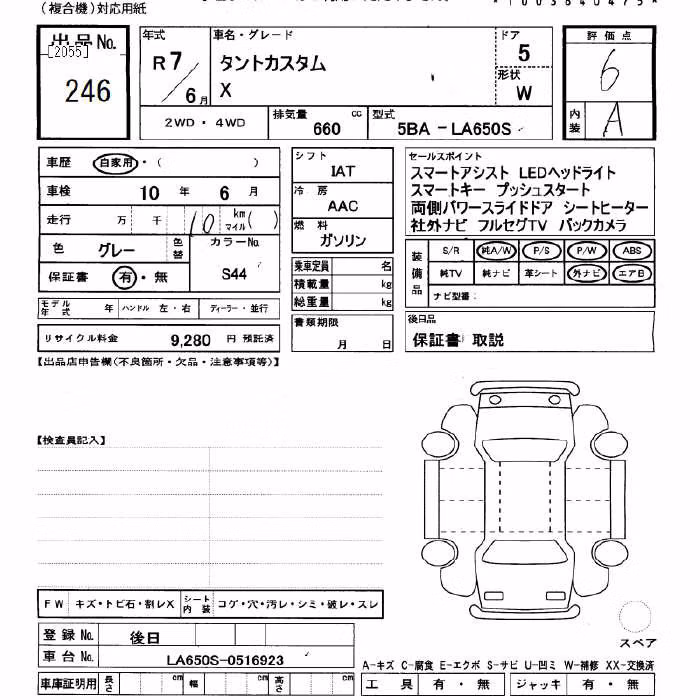 (複合機)対応用紙
*1003640475*
出品No. [2055] 246
年式 R7/6月
車名・グレード タントカスタム X
ドア 5
形状 W
評価点 6
内装 A
2WD・4WD
排気量 660 cc
型式 5BA-LA650S
車歴 自家用・( )
車検 10年 6月
走行 万 千 10 km マイル( )
色 グレー 色替 カラーNo. S44
保証書 有・無
モデル年式 年 ハンドル 左・右 ディーラー・並行
リサイクル料金 9,280 円 預託済
シフト IAT
冷房 AAC
燃料 ガソリン
乗車定員 名
積載量 kg
総重量 kg
書類期限 月 日
セールスポイント
スマートアシスト LEDヘッドライト
スマートキー プッシュスタート
両側パワースライドドア シートヒーター
社外ナビ フルセグTV バックカメラ
装備品 S/R 純A/W P/S P/W ABS
純TV 純ナビ 革シート 外ナビ エアB
ナビ型番:
後日品
保証書 取説
【出品店申告欄(不良箇所・欠品・注意事項等)】
【検査員記入】
FW キズ・トビ石・割レX シート内装 コゲ・穴・汚レ・シミ・破レ・スレ
登録No. 後日
車台No. LA650S-0516923
車庫証明用 長さ cm 幅 cm 高さ cm
スペア
A-キズ C-腐食 E-エクボ S-サビ U-凹ミ W-補修 XX-交換済
工具 有・無 ジャッキ 有・無